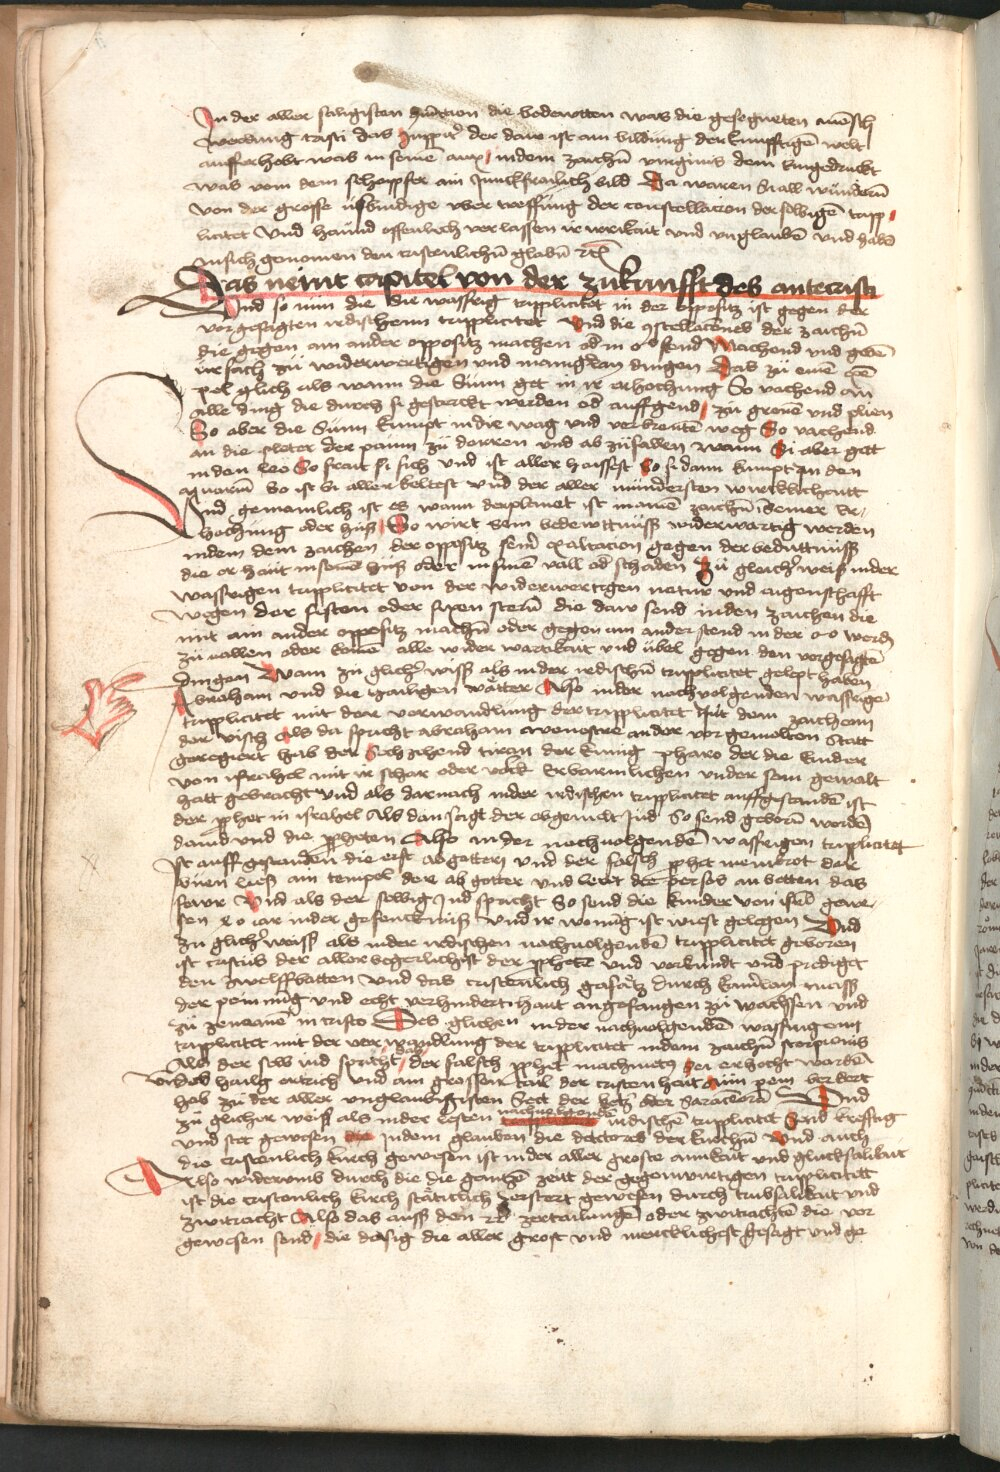 In der aller saligisten Iunction die bedewtten was die gesegneten mensch
werdung cristi das Juppiter der daw ist am bildung der kunfftigen welt
aufferhebt was in seinem aux / indem zaichen virginis dem Eingedruckt
was vom dem schopffer ain Junckfrailich bild Da waren si all wundern
von der grosse usbindige uber treffung der constellacion der selbigen tripp
licitet Und haund offenlich verlassen ir irrikait und unglauben und haben
an sich genomen den cristenlichen glaben etc
Das neint capitel von der zukunfft des antecristi
Und so nun die die wassrig tripplicitet in der opposicz ist gegen der
vorgesagten irdischenn tripplicitet Und die constellaciones der zaichen
die gegen ain ander oppositz machen od in o o send Machend und geben
ursach zu widerwertigen und maniglan dingen Das zu einem Exem
pel glich als wann die Sunn get in ir erhochung So vachend an
alle ding die durch si gesterckt werden od auffgend / zu gronen und pluen
So aber die Sunn kumpt in die wag und verbrenten weg So vachend
an die pleter der paum zu dorren und ab zufallen Wann Si aber gett
in den leo So frait si sich und ist aller haissest So si dann kumpt in den
aquarium So ist si aller keltest Und der aller mindersten wircklichaitt
Und gemainlich ist es wann der planet ist in ainem zaichen seiner er
hochung oder huss / So wirt sein bedewttnuss widerwartig werden
indem dem zaichen der opposicz seiner exaltacion gegen der bedutnuss
die er hait in seinem huss oder in sinem vall od schaden Zu gleicher weis in der
wassrigen tripplicitet von der widerwertigen natur und aigenschafft
wegen der fisten oder fixen stern die daw send in den zaichen die
mit ain ander oppositz machen oder gegen ain ander stend in der o o werden
zu vallen oder komen alle wider wartikait und ubel gegen den vorgesagten
Dingen Wann zu glicher wiss als in der irdischen tripplicitet gelept haben
Abraham und die hailigen vätter Also in der nachvolgenden wassrige
tripplicitet mit der verwandlung der tripplicitet Mit dem zaichenn
der visch Als da spricht abraham avenesre an der vorgemelten Statt
geregiert hab der Sechzehend tiran der kunig pharo der die kinder
von israhel mit ir schar oder volck erbarmlichen under sein gewalt
hatt gebracht und als darnach in der irdischen tripplicitet auffgestanden ist
der prophet in israhel Als dan sagt der obgemelt Jud So send geborn worden
david und die propheten Also in der nachvolgenden wassrigen triplicitet
Ist auff gestanden die erst abgotterij und der falsch prophet nembrot der
buen liess ain tempel der abgotter und lernt die persos an betten das
fewr Und als der selbig Jud spricht So send die kinder von israhel gewe
sen xo iar in der gefencknuss Und ir wonung ist wiest gelegen Und
zu glicher weiss als in der irdischen nachvolgenden tripplicitet geboren
ist cristus der aller begerlichist der prophet und verkundt und prediget
den zwelffbotten Und das cristenlich gesatz durch
der peinung und echt verhindert hant angefangen zu wachssen und
zu in cristo Des glichen in der nachvolgenden wassrigenn
tripplicitet mit der verwandlung der tripplicitet in dem zaichen scorpionis
Als der selb iud spricht / hab der falsch prophet machmet sei erhocht worden
Und das hailg ertrich Und ain grossen tail der cristenhait
hab zu der aller unglaubigisten Sect der ketzer oder Saracenorum Und
zu glicher weis als in der lesten nachvolgenden irdischen tripplicitet Send krefftig
und stet gewesen in dem glauben die doctores der kirchen Und auch
die cristenlich kirch gewesen ist in der aller groste ainikait und glucksalikait
Also widerumb durch die die gantzen zeitt der gegenwurtigen tripplicitet
ist die cristenlich kirch stätticlich zerstert gewesen durch trubsalikait und
zwitracht Also das auss den zertailungen oder zwitrachten die vor
gewesen send / die dasig die aller grost und mercklichest gesagt und ge